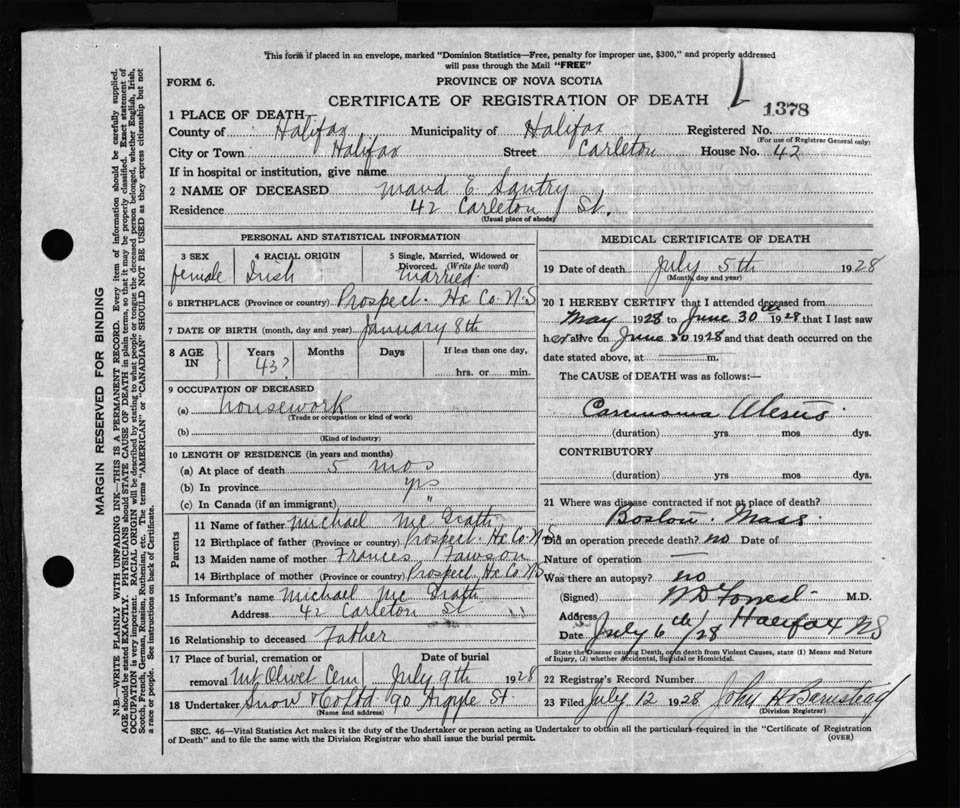 This form if placed in an envelope, marked "Dominion Statistics—Free, penalty for improper use, $300," and properly addressed
will pass through the Mail "FREE"
FORM 6.
PROVINCE OF NOVA SCOTIA
CERTIFICATE OF REGISTRATION OF DEATH
1378
1 PLACE OF DEATH
County of Halifax Municipality of Halifax Registered No.
(For use of Registrar General only)
City or Town Halifax Street Carleton House No. 42
If in hospital or institution, give name
2 NAME OF DECEASED Maud E. Santry
Residence 42 Carleton St.
(Usual place of abode)
PERSONAL AND STATISTICAL INFORMATION
3 SEX female
4 RACIAL ORIGIN Irish
5 Single, Married, Widowed or Divorced. (Write the word) Married.
6 BIRTHPLACE (Province or country) Prospect. Hx Co. N.S
7 DATE OF BIRTH (month, day and year) January 8th
8 AGE IN Years 43? Months Days If less than one day, hrs. or min.
9 OCCUPATION OF DECEASED
(a) housework
(Trade or occupation or kind of work)
(b)
(Kind of industry)
10 LENGTH OF RESIDENCE (in years and months)
(a) At place of death 5 mos
(b) In province yrs
(c) In Canada (if an immigrant) "
Parents
11 Name of father Michael Mc Grath
12 Birthplace of father Prospect. Hx Co. N.S
13 Maiden name of mother Frances Fawson
14 Birthplace of mother (Province or country) Prospect. Hx Co. NS
15 Informant's name Michael Mc Grath
Address 42 Carleton St "
16 Relationship to deceased Father
17 Place of burial, cremation or removal Mt Olivet Cem Date of burial July 9th 1928
18 Undertaker Snow & Co Ltd 90 Argyle St
(Name and address)
MEDICAL CERTIFICATE OF DEATH
19 Date of death July 5th 1928
(Month, day and year)
20 I HEREBY CERTIFY that I attended deceased from
May 1928 to June 30th 1928 that I last saw
her alive on June 30 1928 and that death occurred on the
date stated above, at m.
The CAUSE of DEATH was as follows:—
Carcinoma Uterus.
(duration) yrs mos dys.
CONTRIBUTORY
(duration) yrs. mos. dys.
21 Where was disease contracted if not at place of death?
Boston. Mass.
Did an operation precede death? no Date of
Nature of operation —
Was there an autopsy? no
(Signed) M.D.
Address Halifax NS
Date July 6th/28
State the Disease causing Death, or in death from Violent Causes, state (1) Means and Nature
of Injury, (2) whether Accidental, Suicidal or Homicidal.
22 Registrar's Record Number
23 Filed July 12 1928 John H Barnstead
(Division Registrar)
SEC. 46—Vital Statistics Act makes it the duty of the Undertaker or person acting as Undertaker to obtain all the particulars required in the "Certificate of Registration
of Death" and to file the same with the Division Registrar who shall issue the burial permit.
(OVER)
MARGIN RESERVED FOR BINDING
N.B.—WRITE PLAINLY WITH UNFADING INK—THIS IS A PERMANENT RECORD. Every item of information should be carefully supplied.
AGE should be stated EXACTLY. PHYSICIANS should STATE CAUSE OF DEATH in plain terms, so that it may be properly classified. Exact statement of
OCCUPATION is very important. RACIAL ORIGIN will be described by stating to what people or tongue the deceased person belonged, whether English, Irish,
Scotch, French, German, Russian, Ruthenian, etc. The terms "AMERICAN" or "CANADIAN" SHOULD NOT BE USED as they express citizenship but not
a race or people. See instructions on back of Certificate.